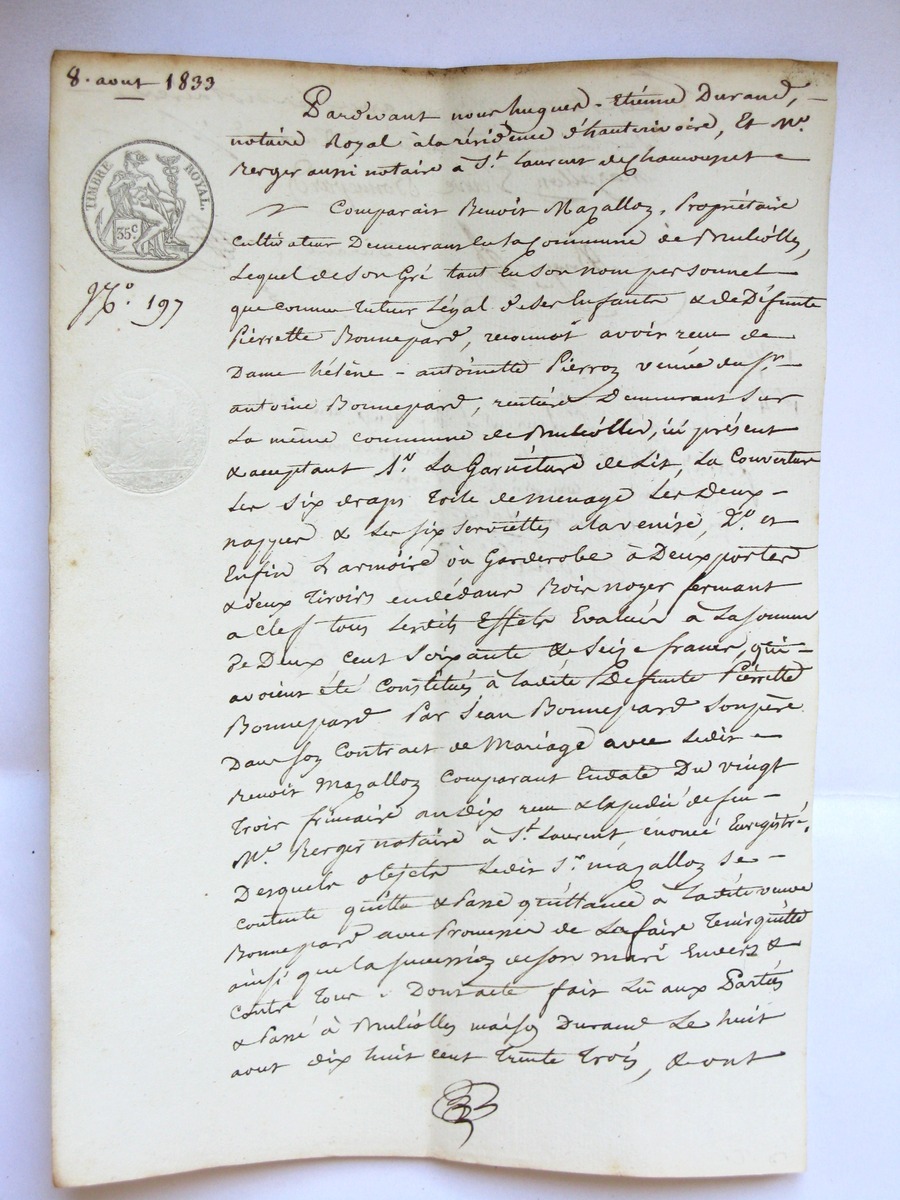 8. aout 1833
TIMBRE ROYAL.
35c
No. 197
Pardevant nous hugues - Etienne Durand,
notaire Royal à la résidence d'hauterivoire, Et Me.
Berger aussi notaire à St. Laurent de chamousset
Comparait Benoit Mazalloz, Propriétaire
Cultivateur Demeurant en la Commune de Brulliolles,
Lequel de son Gré tant en son nom personnel
que comme tuteur Légal de ses Enfants & de Défunte
Pierrette Bonnepard, reconnoit avoir recu de
Dame hélène - antoinette Pierroz veuve du Sr.
antoine Bonnepard, rentière Demeurant sur
La même commune de Brulliolles, ici présent
& acceptant 1o. La Garniture de Lit, La Couverture
Les Six draps toile de menage Les Deux
nappes & Les six serviettes a la venise, 2o. et
Enfin L'armoire ou Garderobe à Deux portes
& deux tiroirs en dedans Bois noyer fermant
a clef tous Lesdits Effets Evalués à La somme
de Deux cent Soixante & Seize francs, qui
avoient été Constitués à Ladite Défunte Pierrette
Bonnepard Par Jean Bonnepard son père
Dans son Contract de Mariage avec Ledit
Benoit Mazalloz Comparant En date Du vingt
trois frimaire an dix recu & Expédié de feu
Me. Berger notaire à St. Laurent énoncé Enregistré.
Desquels objets Ledit Sr. mazalloz se
contente quitte & Passe quittance à Ladite veuve
Bonnepard avec Promesse de La faire tenir quitte
ainsi que la succession de son mari Envers &
Contre tous. Dont acte fait Lu aux Parties
& Passé à Brulliolles maison Durand Le huit
aout dix huit cent trente trois, & ont